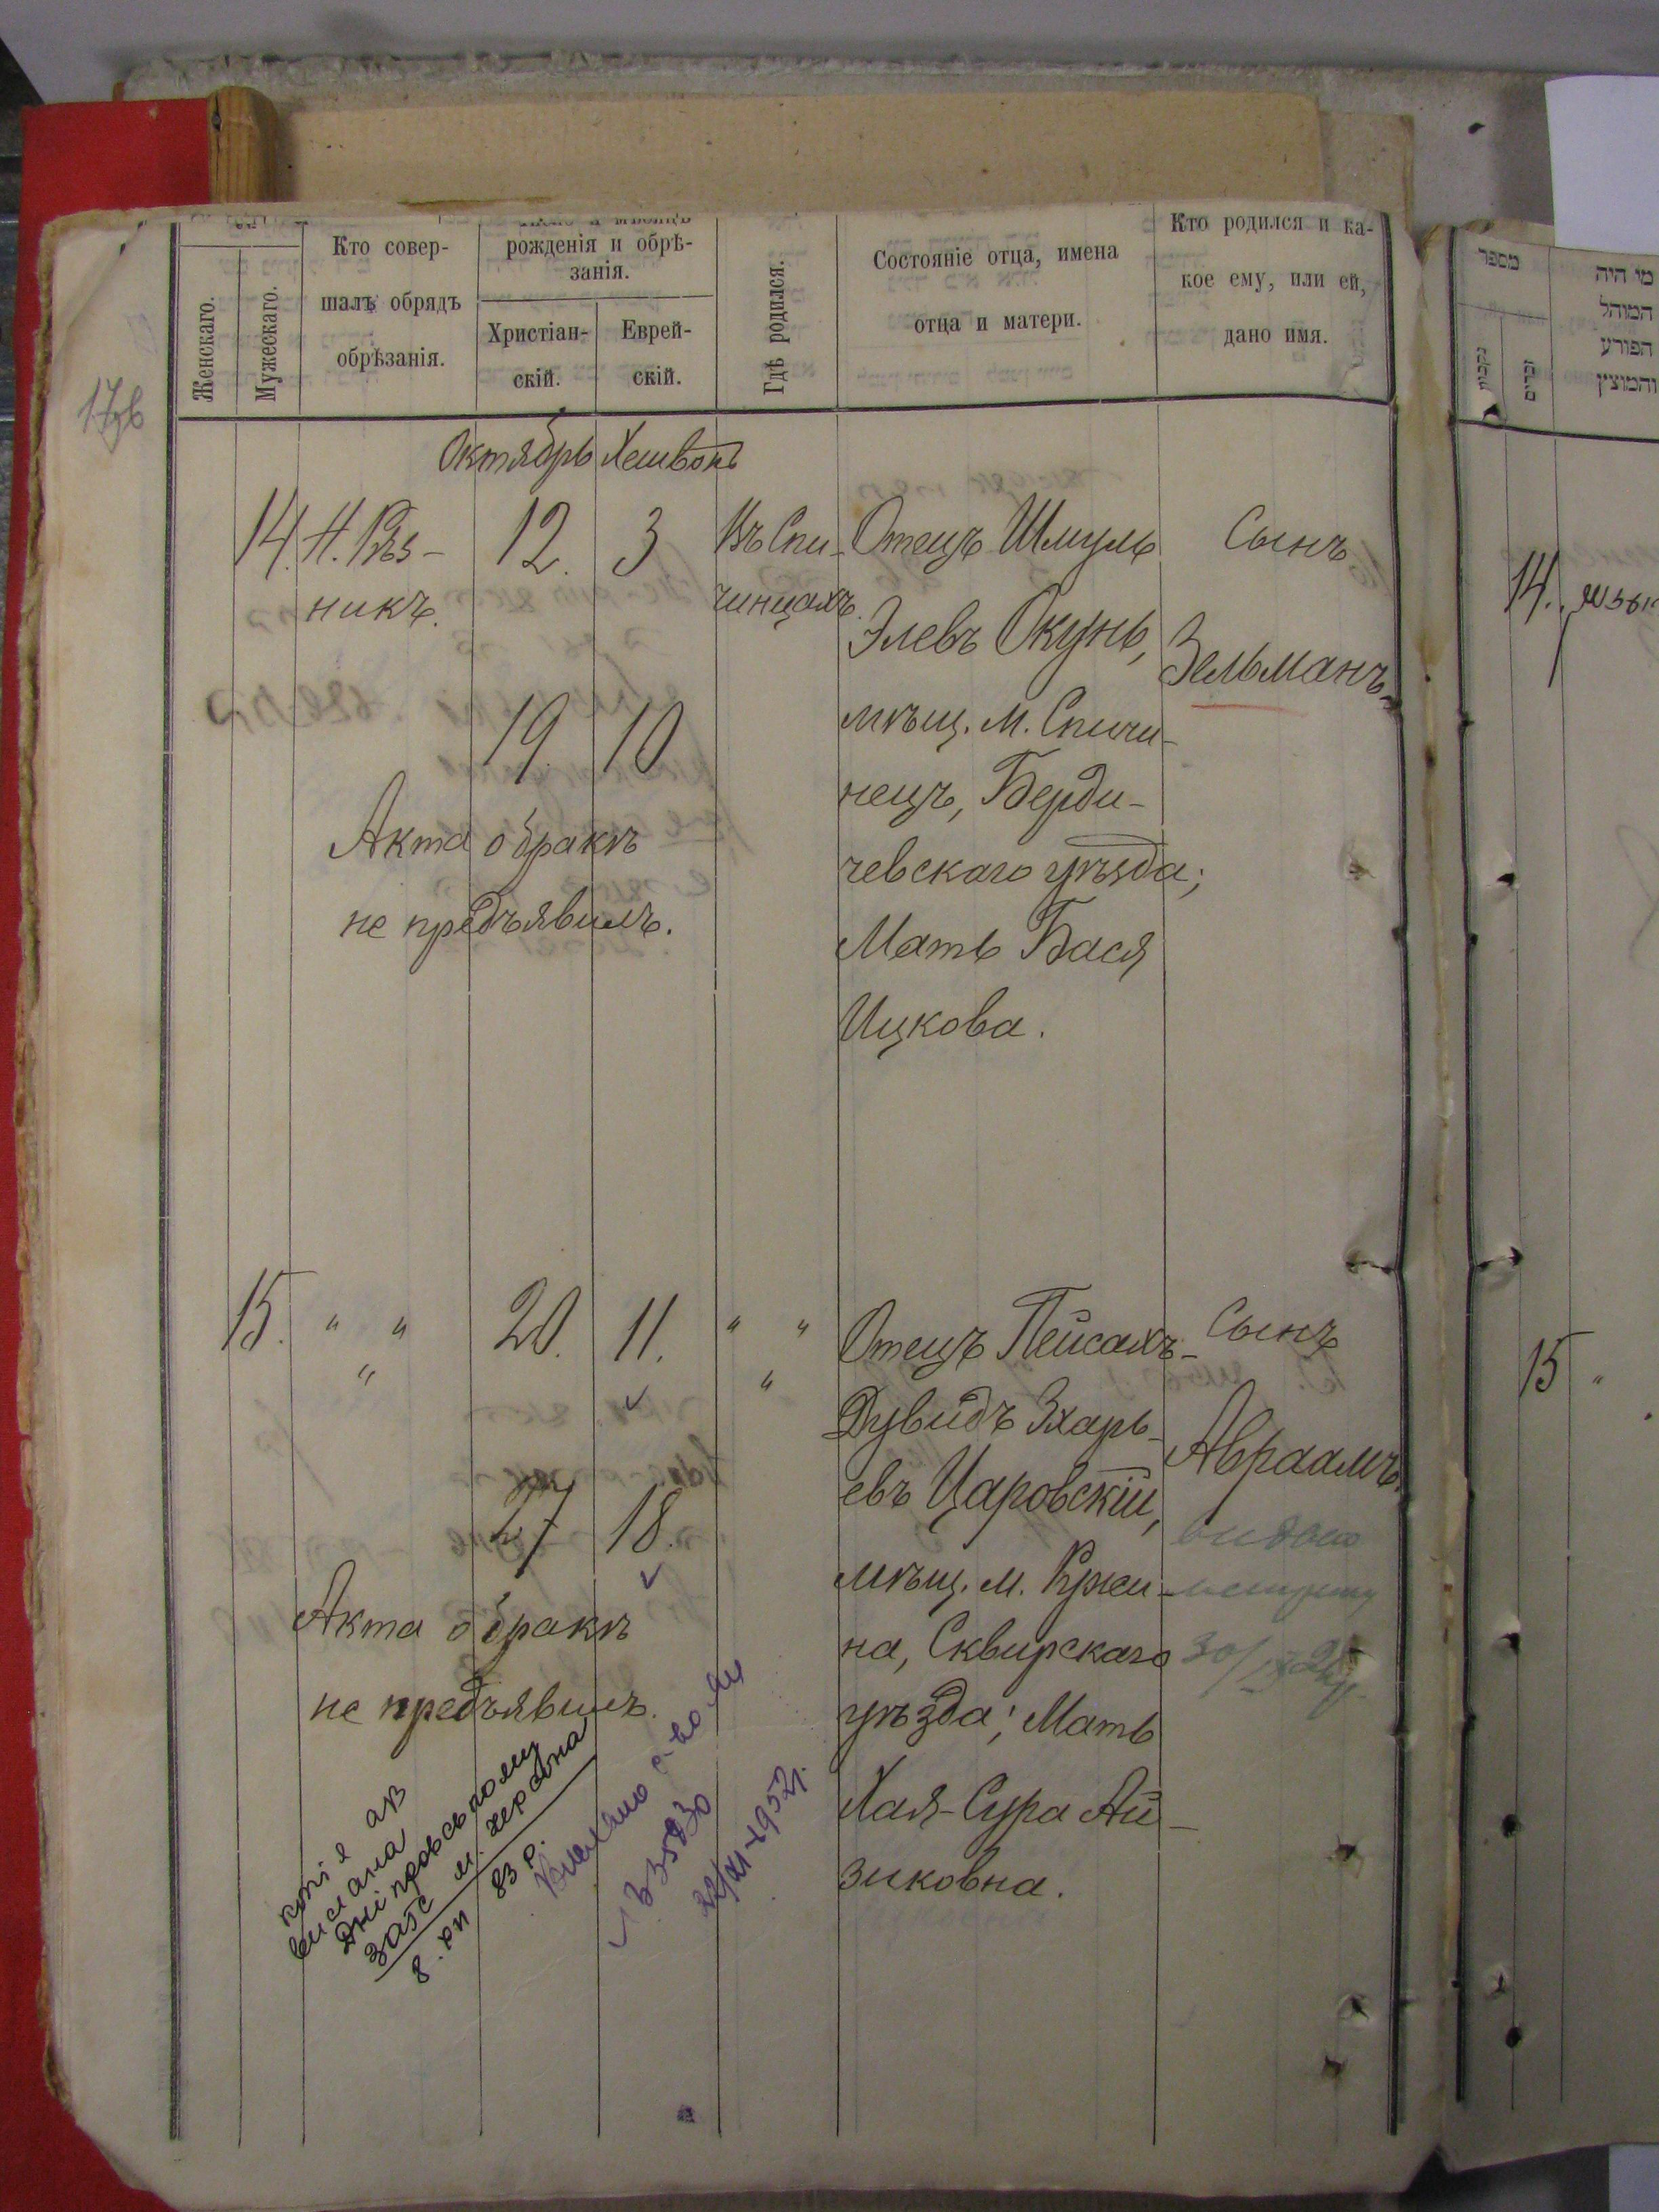 Женскаго.
Мужескаго.
Кто совер-
шалъ обрядъ
обрѣзанія.
рожденія и обрѣ-
занія.
Христіан-
скій.
Еврей-
скій.
Гдѣ родился.
Состояніе отца, имена
отца и матери.
Кто родился и ка-
кое ему, или ей,
дано имя.
Октябрь Хешвонъ
14. Н. Рѣз-
никъ.
12. 3
19. 10
Въ Спи-
чинцахъ.
Отецъ Шмуль
Элевъ Окунь,
мѣщ. м. Спичи-
нецъ, Берди-
чевскаго уѣзда;
Мать Бася
Ицкова.
Сынъ
Зельманъ
Акта о бракѣ
не предъявилъ.
15. " "
"
20. 11.
27 18.
" "
"
Отецъ Пейсахъ-
Дувидъ Зхарь-
евъ Царовскій,
мѣщ. м. Ружи-
на, Сквирскаго
уѣзда; Мать
Хая-Сура Ай-
зиковна.
Сынъ
Авраамъ.
Акта о бракѣ
не предъявилъ.
копія АВ
вислана
Дніпровському
ЗАГС м. Херсона
83 р.
22/XI-1952г.
מספר
נקבות
זכרים
מי היה
המוהל
הפורע
והמוצץ
14.
15 "